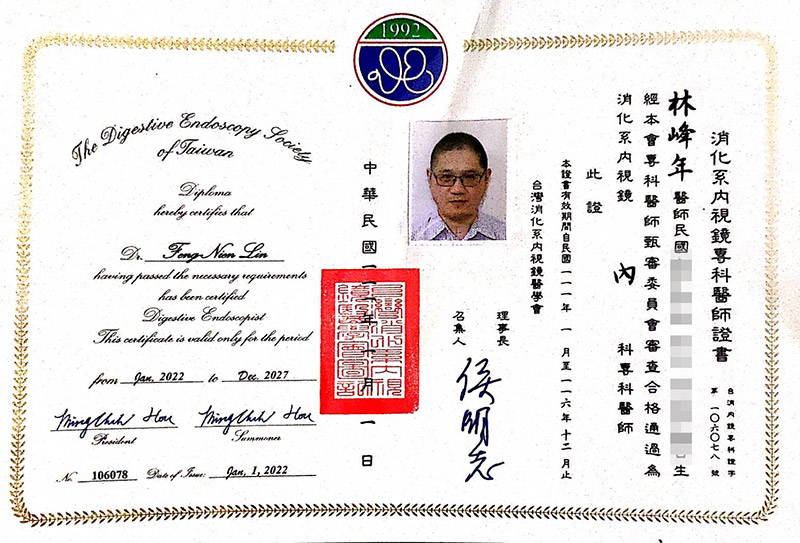 1992
The Digestive Endoscopy Society
of Taiwan
Diploma
hereby certifies that
Dr. Feng-Nien Lin
having passed the necessary requirements
has been certified
Digestive Endoscopist
This certificate is valid only for the period
from Jan, 2022 to Dec. 2027
Ming Chih Hou Ming Chih Hou
President Summoner
No. 106078 Date of Issue: Jan, 1, 2022
消化系內視鏡專科醫師證書
台消內鏡專科證字
第一〇六〇七八號
林峰年醫師民國 生
經本會專科醫師甄審委員會審查合格通過為
消化系內視鏡 內 科專科醫師
此證
本證書有效期間自民國一一一年一月至一一六年十二月止
台灣消化系內視鏡醫學會
理事長
召集人
侯明志
中華民國一一一年一月一日